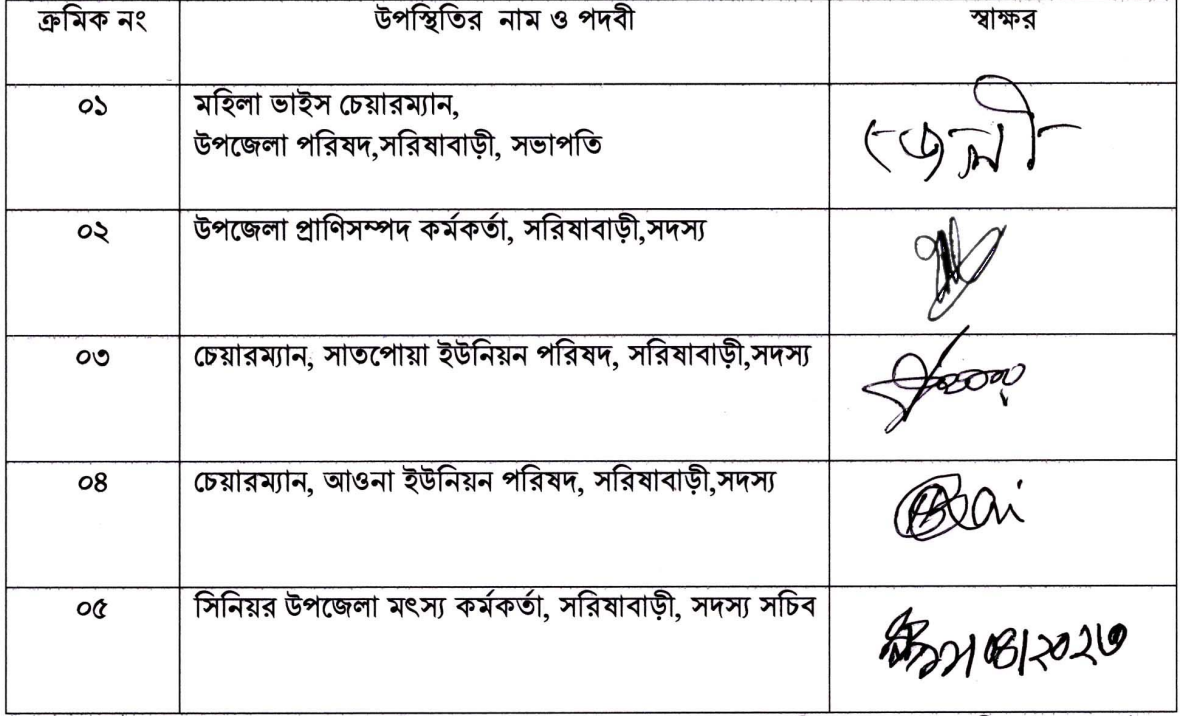 ক্রমিক নং উপস্থিতির নাম ও পদবী স্বাক্ষর
০১ মহিলা ভাইস চেয়ারম্যান,
উপজেলা পরিষদ,সরিষাবাড়ী, সভাপতি
০২ উপজেলা প্রাণিসম্পদ কর্মকর্তা, সরিষাবাড়ী,সদস্য
০৩ চেয়ারম্যান, সাতপোয়া ইউনিয়ন পরিষদ, সরিষাবাড়ী,সদস্য
০৪ চেয়ারম্যান, আওনা ইউনিয়ন পরিষদ, সরিষাবাড়ী,সদস্য
০৫ সিনিয়র উপজেলা মৎস্য কর্মকর্তা, সরিষাবাড়ী, সদস্য সচিব